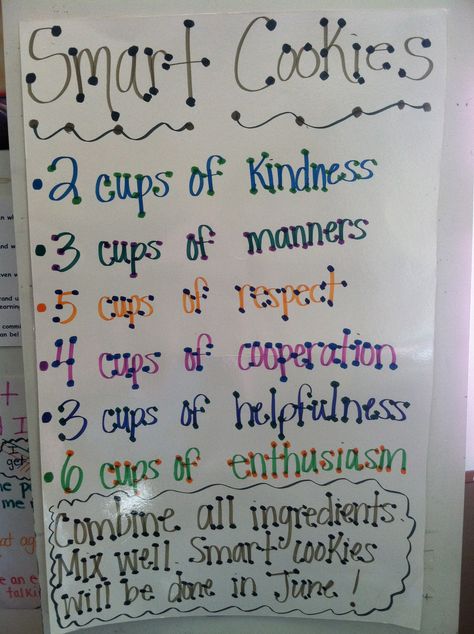 Smart Cookies
• 2 cups of kindness
• 3 cups of manners
• 5 cups of respect
• 4 cups of cooperation
• 3 cups of helpfulness
• 6 cups of enthusiasm
Combine all ingredients.
Mix well. Smart cookies
will be done in June!